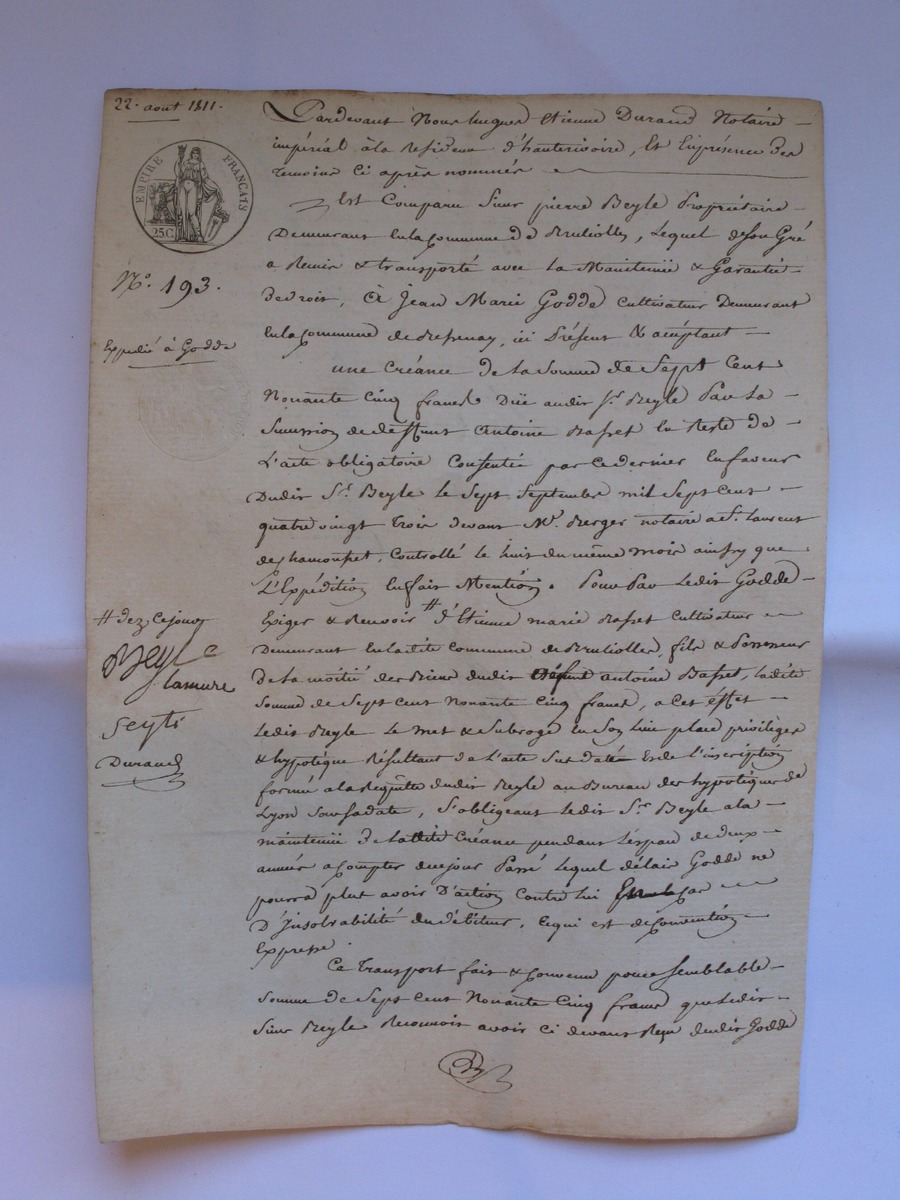 22. aout 1811.
EMPIRE FRANÇAIS
25C
N.o 193.
Expedié à Godde
Pardevant Nous hugues Etienne Durand Notaire
impérial à la Residence d'hauterivoire, et En présence des
temoins Ci après nommés
Est Comparu Sieur pierre Beyle Propriétaire
Demeurant En la Commune de Brulioles, Lequel de son Gré
a Remis & transporté avec La Maintenüe & Garantie
de droit, à Jean Marie Godde Cultivateur Demeurant
En la Commune de, ici Présent & acceptant
une Créance de La Somme de Sept Cent
Nonante Cinq francs Düe audit Sr. Beyle Par La
Succession de deffunt Antoine Basset En Reste de
L'acte obligatoire Consentie par ce dernier En faveur
Dudit Sr. Beyle Le Sept Septembre mil Sept Cent
quatre vingt trois devant Me. Berger notaire a St. Laurent
de Chamousset, Controllé Le huit du même mois ainsy que
L'Expédition En fait Mention. Pour Par Ledit Godde
Exiger & Recevoir # d'Etienne marie Basset Cultivateur
Demeurant En ladite Commune de Brulioles, fils & Possesseur
De La moitié des Biens dudit défunt Antoine Basset, Ladite
Somme de Sept Cent Nonante Cinq francs, a Cet Effet
Ledit Beyle Le Met & Subroge En Son Lieu place privilèges
& hypotèque Résultant de L'acte Sus daté Et de L'inscription
formée a la Requête dudit Beyle au Bureau des hypotèques de
Lyon Sous Sa date, S'obligeant Ledit Sr. Beyle a la
maintenüe De Ladite Créance pendant L'espace de deux
années a Compter de ce jour Passé Lequel délais Godde ne
pourra plus avoir D'action Contre Lui En cas
D'Insolvabilité du débiteur, Ce qui est de Convention
Expresse.
Ce Transport fait & Convenu pour Semblable
Somme de Sept Cent Nonante Cinq francs que Ledit
Sieur Beyle Reconnoit avoir Ci devant Reçu dudit Godde
# dez Ce jour
Beyle
Lamure
Seyti
Durand